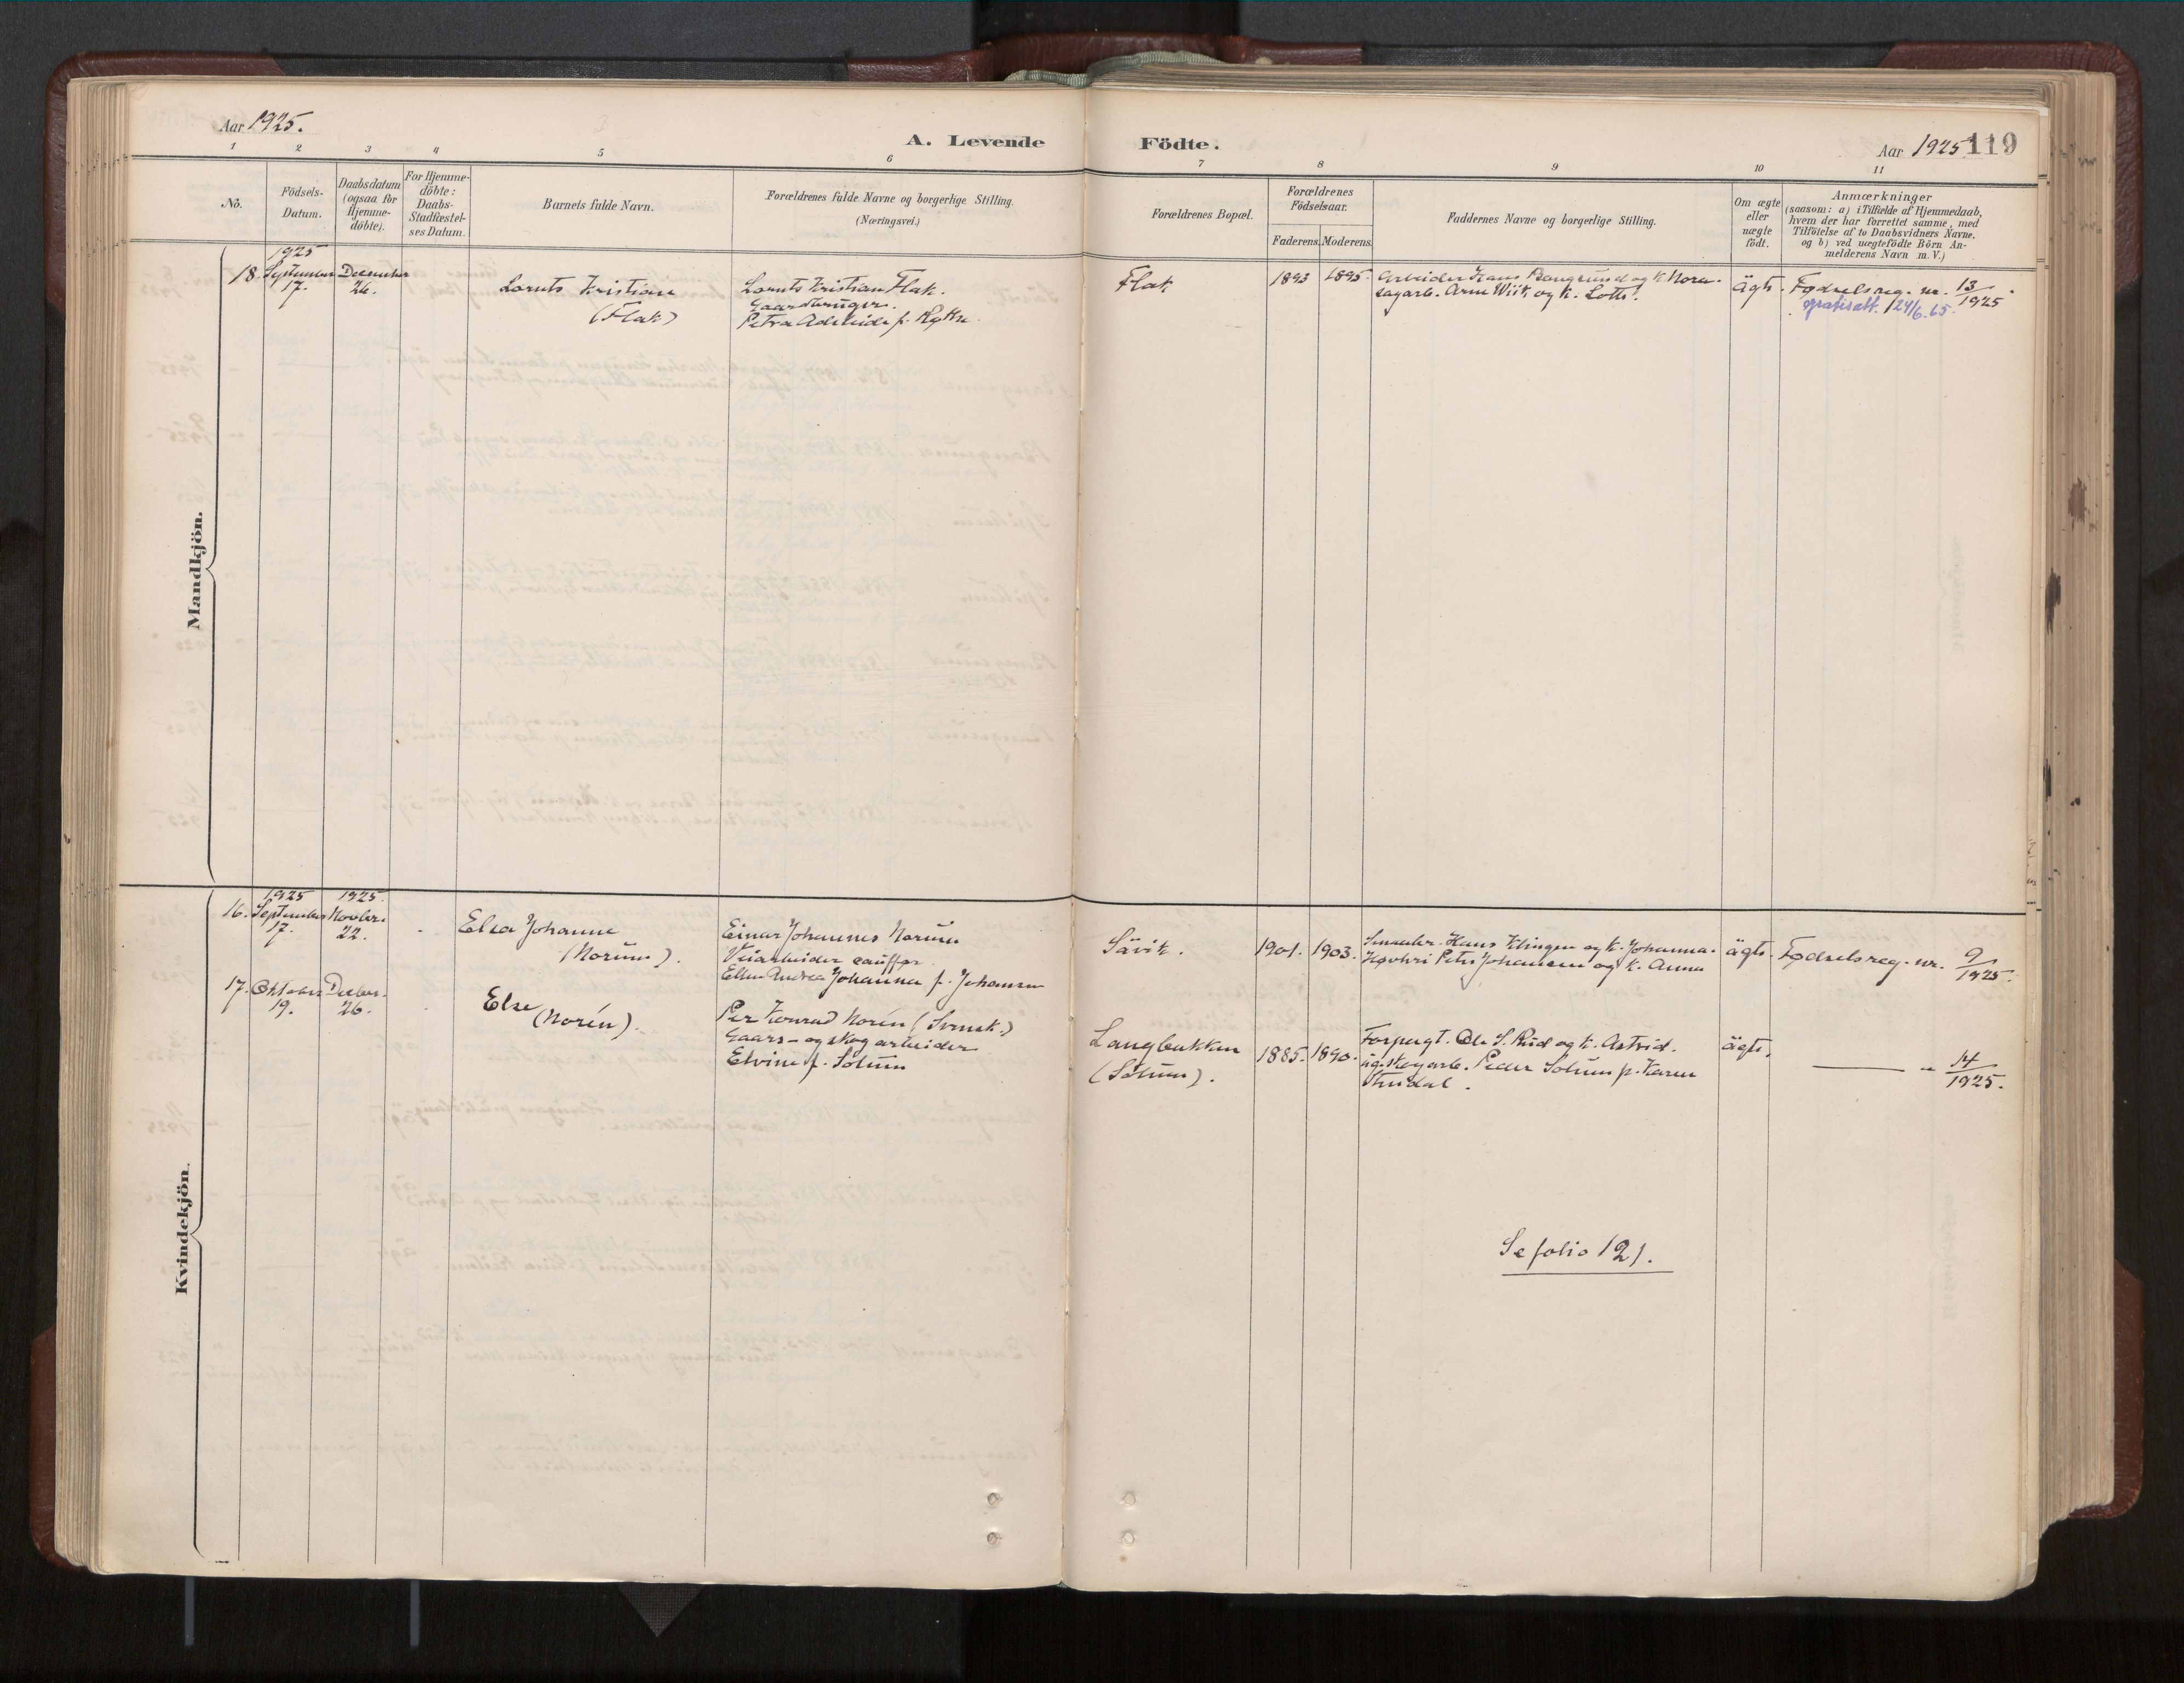 Aar 1925.
A. Levende
Födte.
Aar 1925. 119
1 2 3 4 5 6 7 8 9 10 11
No.
Födsels-
Datum.
Daabsdatum
(ogsaa for
Hjemme-
döbte).
For Hjemme-
döbte:
Daabs-
Stadfæstel-
ses Datum.
Barnets fulde Navn.
Forældrenes fulde Navne og borgerlige Stilling.
(Næringsvei.)
Forældrenes Bopæl.
Forældrenes
Födselsaar.
Faderens. Moderens.
Faddernes Navne og borgerlige Stilling.
Om ægte
eller
uægte
födt.
Anmærkninger
(saasom: a) i Tilfælde af Hjemmedaab,
hvem der har forrettet samme, med
Tilföielse af to Daabsvidners Navne.
og b) ved uægtefödte Börn An-
melderens Navn m. V.)
Mandkjön.
1925
18. September December
17. 26.
Lornts Kristian
(Flak)
Lornts Kristian Flak.
Gaardbruger.
Petra Adeleide f.
Flak
1893 1895.
Arbeider Hans Bangsund og k. Nora.
Sagarb. Arne Wiik og k. Lotte.
ägte.
Fødselsreg. nr. 13/1925.
gratisatt. 24/6.65.
Kvindekjön.
1925 1925.
16. September Novbr.
17. 22.
Elsa Johanne
(Norum).
Einar Johannes Norum
Veiarbeider
Ellen Andrea Johanna f. Johansen
Sävik.
1901. 1903.
Hans Klingen og k. Johanna.
Peter Johansen og k. Anna
ägte.
Fødselsreg. nr. 9/1925.
17. Oktober Decbr.
19. 26.
Else
(Norén).
Per Konrad Norén (Svensk.)
Gaards- og skogarbeider
Elvine f. Solum
Langbakken
(Solum).
1885. 1890.
Forpagt. Ole S. Rud og k. Astrid.
ug. skogarb. Peder Solum p. Karen
ägte.
— " 14/1925.
Se folio 121.